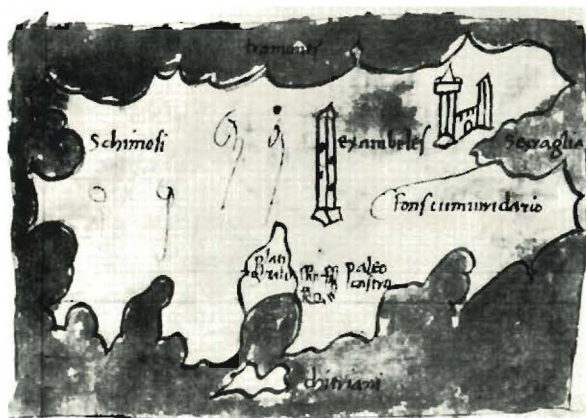 tramones
Schinosi
exambeles
Seraglia
fons cum uiridario
paleo
castro
chitriani